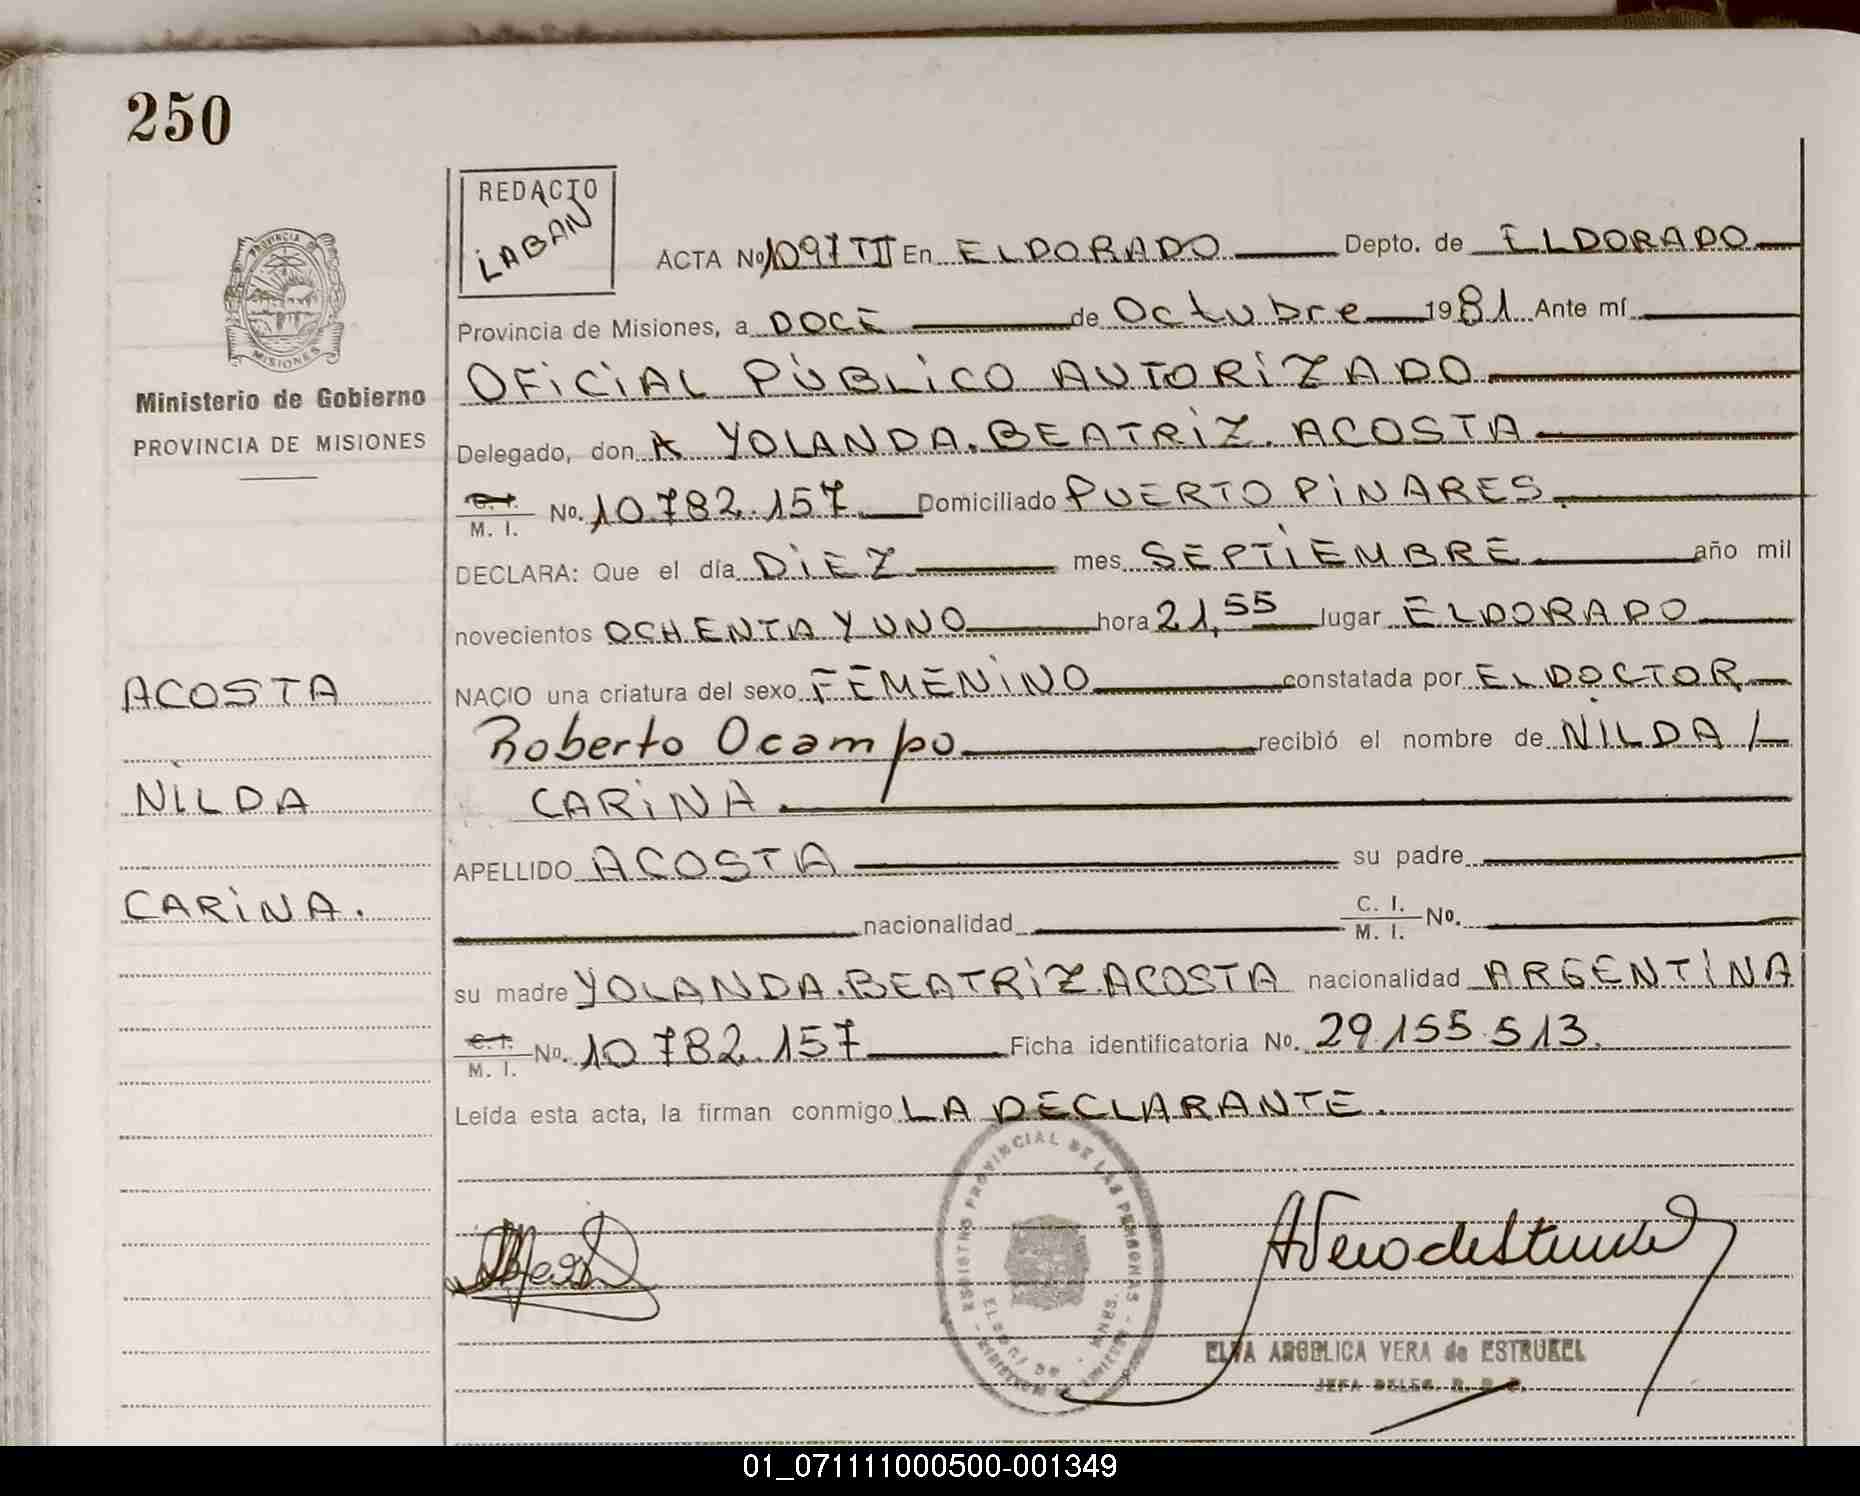 250
REDACTO
LABAN
PROVINCIA DE
MISIONES
Ministerio de Gobierno
PROVINCIA DE MISIONES
ACTA No 1097 TII En ELDORADO Depto. de ELDORADO
Provincia de Misiones, a DOCE de Octubre 1981 Ante mí
OFICIAL PÚBLICO AUTORIZADO
Delegado, don A YOLANDA.BEATRIZ.ACOSTA
C. I. / M. I. No. 10.782.157 Domiciliado PUERTO PINARES.
DECLARA: Que el día DIEZ mes SEPTIEMBRE año mil
novecientos OCHENTA Y UNO hora 21,55 lugar ELDORADO
NACIO una criatura del sexo FEMENINO constatada por EL DOCTOR
Roberto Ocampo recibió el nombre de NILDA /
CARINA.
APELLIDO ACOSTA su padre
nacionalidad C. I. / M. I. No.
su madre YOLANDA.BEATRIZ.ACOSTA nacionalidad ARGENTINA
C. I. / M. I. No. 10.782.157 Ficha identificatoria No. 29.155.513.
Leída esta acta, la firman conmigo LA DECLARANTE.
ACOSTA
NILDA
CARINA.
REGISTRO PROVINCIAL DE LAS PERSONAS
AVera de Estrukel
ELVA ANGELICA VERA de ESTRUKEL
JEFA DELEG.
01_071111000500-001349